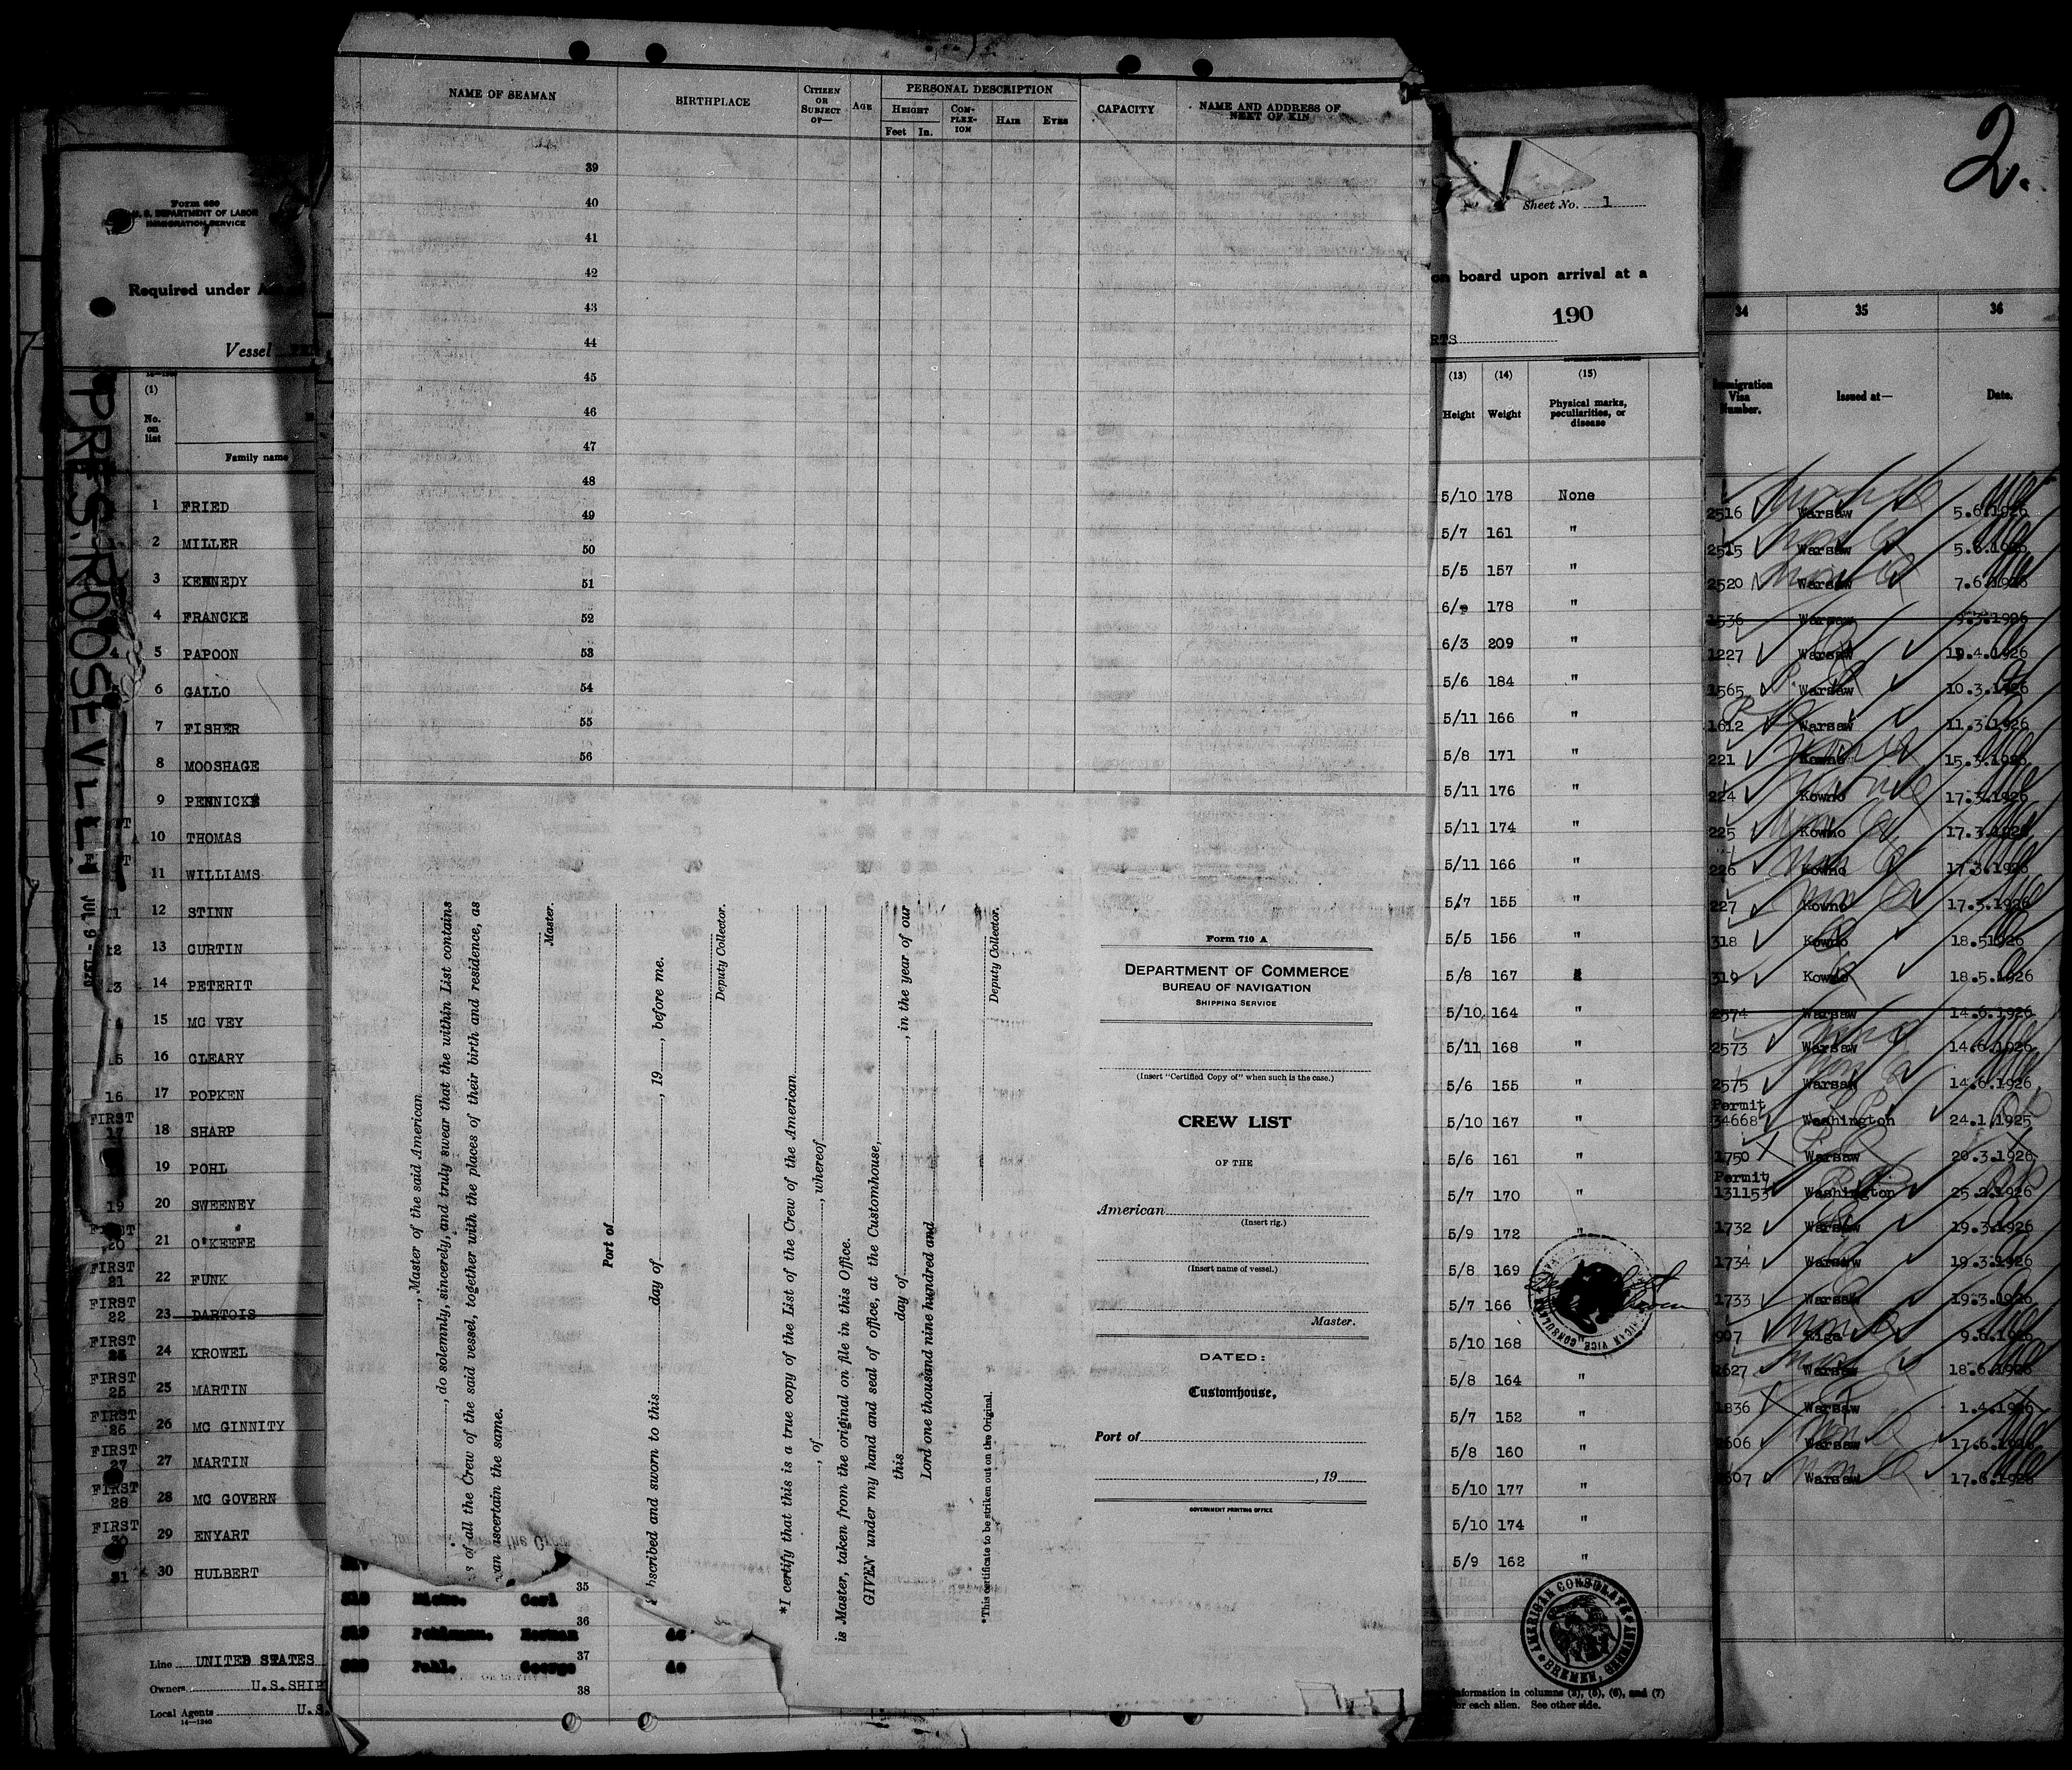 Form 680
U. S. DEPARTMENT OF LABOR
IMMIGRATION SERVICE
Required under
Vessel
PRES. ROOSEVELT
JUL 9 - 1926
(1)
No. on list
Family name
1 FRIED
2 MILLER
3 KENNEDY
4 FRANCKE
5 PAPOON
6 GALLO
7 FISHER
8 MOOSHAGE
9 PENNICKE
10 THOMAS
11 WILLIAMS
12 STINN
13 CURTIN
14 PETERIT
15 MC VEY
16 CLEARY
17 POPKEN
18 SHARP
19 POHL
20 SWEENEY
21 O'KEEFE
22 FUNK
23 DARTOIS
24 KROWEL
25 MARTIN
26 MC GINNITY
27 MARTIN
28 MC GOVERN
29 ENYART
30 HULBERT
16
FIRST
17
19
20
FIRST
21
FIRST
22
FIRST
FIRST
25
FIRST
26
FIRST
27
FIRST
28
FIRST
30
Line UNITED STATES
Owners U.S.SHIP
Local Agents U.S.
14—1240
NAME OF SEAMAN
BIRTHPLACE
CITIZEN OR SUBJECT OF—
AGE
PERSONAL DESCRIPTION
HEIGHT
Feet In.
COMPLEXION
HAIR
EYES
CAPACITY
NAME AND ADDRESS OF NEXT OF KIN
39
40
41
42
43
44
45
46
47
48
49
50
51
52
53
54
55
56
, Master of the said American
, do solemnly, sincerely, and truly swear that the within List contains
s of all the Crew of the said vessel, together with the places of their birth and residence, as
can ascertain the same.
Master.
Port of
scribed and sworn to this day of , 19 , before me.
Deputy Collector.
*I certify that this is a true copy of the List of the Crew of the American
, of , whereof
is Master, taken from the original on file in this Office.
GIVEN under my hand and seal of office, at the Customhouse,
this day of , in the year of our
Lord one thousand nine hundred and
Deputy Collector.
*This certificate to be striken out on the Original.
Form 710 A
DEPARTMENT OF COMMERCE
BUREAU OF NAVIGATION
SHIPPING SERVICE
(Insert "Certified Copy of" when such is the case.)
CREW LIST
OF THE
American
(Insert rig.)
(Insert name of vessel.)
Master.
DATED:
Customhouse,
Port of
, 19
GOVERNMENT PRINTING OFFICE
35
Carl
36
Herman do
37
Pahl. George do
38
Sheet No. 1
on board upon arrival at a
190
RTS
(13) (14) (15)
Height Weight Physical marks, peculiarities, or disease
5/10 178 None
5/7 161 "
5/5 157 "
6/ 178 "
6/3 209 "
5/6 184 "
5/11 166 "
5/8 171 "
5/11 176 "
5/11 174 "
5/11 166 "
5/7 155 "
5/5 156 "
5/8 167
5/10 164 "
5/11 168 "
5/6 155 "
5/10 167 "
5/6 161 "
5/7 170 "
5/9 172 "
5/8 169
5/7 166
5/10 168 "
5/8 164 "
5/7 152 "
5/8 160 "
5/10 177 "
5/10 174 "
5/9 162 "
AMERICAN CONSULATE
BREMEN, GERMANY
information in columns (3), (5), (6), and (7)
for each alien. See other side.
2.
34 35 36
Immigration Visa Number.
Issued at—
Date.
2516 Warsaw 5.6.1926
2515 Warsaw 5.6.1926
2520 Warsaw 7.6.1926
1536 Warsaw 9.3.1926
1227 Warsaw 19.4.1926
1565 Warsaw 10.3.1926
1612 Warsaw 11.3.1926
221 Kowno 15.3.1926
224 Kowno 17.3.1926
225 Kowno 17.3.1926
226 Kowno 17.3.1926
227 Kowno 17.3.1926
318 Kowno 18.51926
319 Kowno 18.5.1926
2574 Warsaw 14.6.1926
2573 Warsaw 14.6.1926
2575 Warsaw 14.6.1926
Permit
34668 Washington 24.1.1925
1750 Warsaw 20.3.1926
Permit
131153 Washington 25.2.1926
1732 Warsaw 19.3.1926
1734 Warsaw 19.3.1926
1733 Warsaw 19.3.1926
907 Riga 9.6.1926
2627 Warsaw 18.6.1926
1836 Warsaw 1.4.1926
2606 Warsaw 17.6.1926
2607 Warsaw 17.6.1926